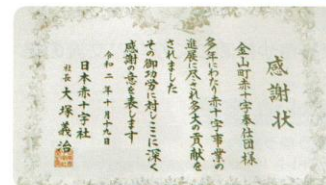 感謝状
金山町赤十字奉仕団様
多年にわたり赤十字事業の
進展に尽され多大の貢献を
されました
その御功労に対しここに深く
感謝の意を表します
令和二年十月十九日
日本赤十字社
社長 大塚義治